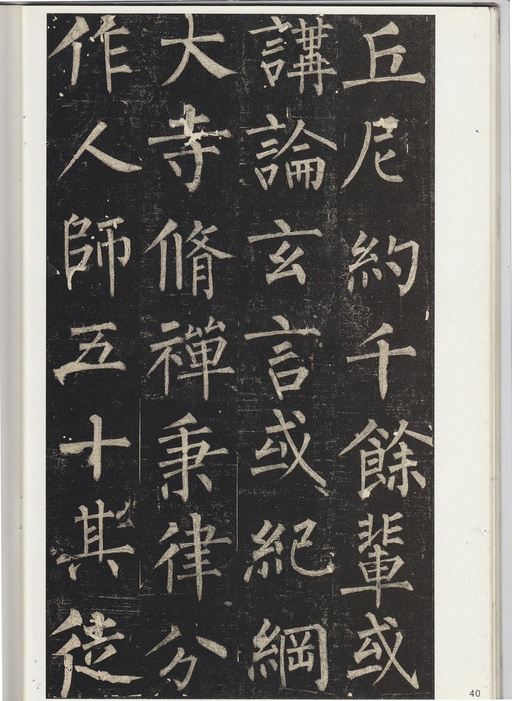 丘尼約千餘輩或
講論玄言或紀綱
大寺脩禪秉律分
作人師五十其徒
40